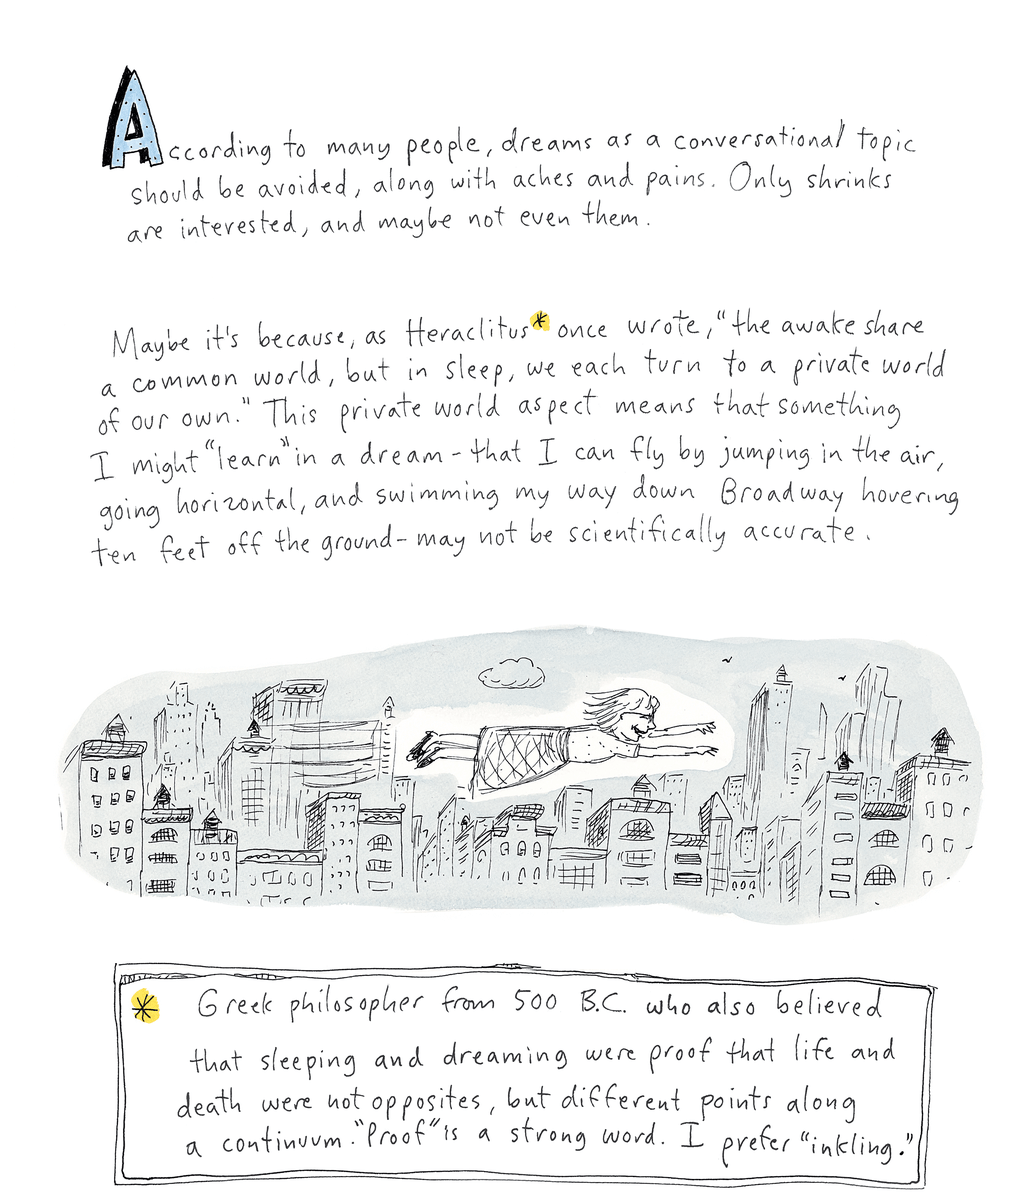 According to many people, dreams as a conversational topic
should be avoided, along with aches and pains. Only shrinks
are interested, and maybe not even them.
Maybe it's because, as Heraclitus* once wrote, "the awake share
a common world, but in sleep, we each turn to a private world
of our own." This private world aspect means that something
I might "learn" in a dream - that I can fly by jumping in the air,
going horizontal, and swimming my way down Broadway hovering
ten feet off the ground - may not be scientifically accurate.
* Greek philosopher from 500 B.C. who also believed
that sleeping and dreaming were proof that life and
death were not opposites, but different points along
a continuum. "Proof" is a strong word. I prefer "inkling."